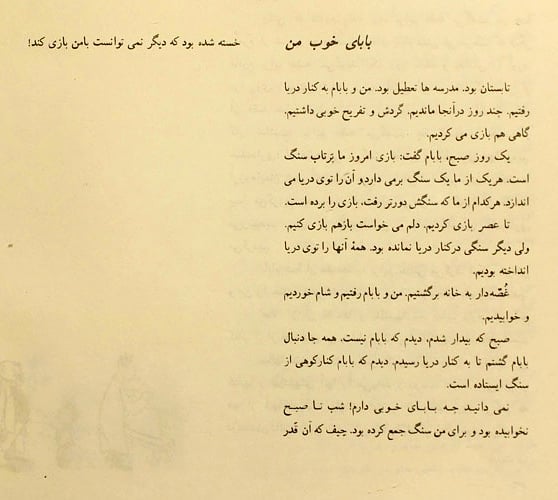 بابای خوب من
تابستان بود. مدرسه ها تعطیل بود. من و بابام به کنار دریا
رفتیم. چند روز درآنجا ماندیم. گردش و تفریح خوبی داشتیم.
گاهی هم بازی می کردیم.
یک روز صبح، بابام گفت: بازی امروز ما پَرتاب سنگ
است. هریک از ما یک سنگ برمی داردو آنَ را توی دریا می
اندازد. هرکدام از ما که سنگش دورتر رفت، بازی را بِرده است.
تا عصر بازی کردیم. دلم می خواست بازهم بازی کنیم.
ولی دیگر سنگی درکنار دریا نمانده بود. همهٔ آنها را توی دریا
انداخته بودیم.
غُصّه‌دار به خانه برگشتیم. من و بابام رفتیم و شام خوردیم
و خوابیدیم.
صبح که بیدار شدم، دیدم که بابام نیست. همه جا دنبال
بابام گشتم تا به کنار دریا رسیدم. دیدم که بابام کنارکوهی از
سنگ ایستاده است.
نمی دانید چه بابای خوبی دارم! شب تا صبح
نخوابیده بود و برای من سنگ جمع کرده بود. چیف که آن قَدر
خسته شده بود که دیگر نمی توانست بامن بازی کند!